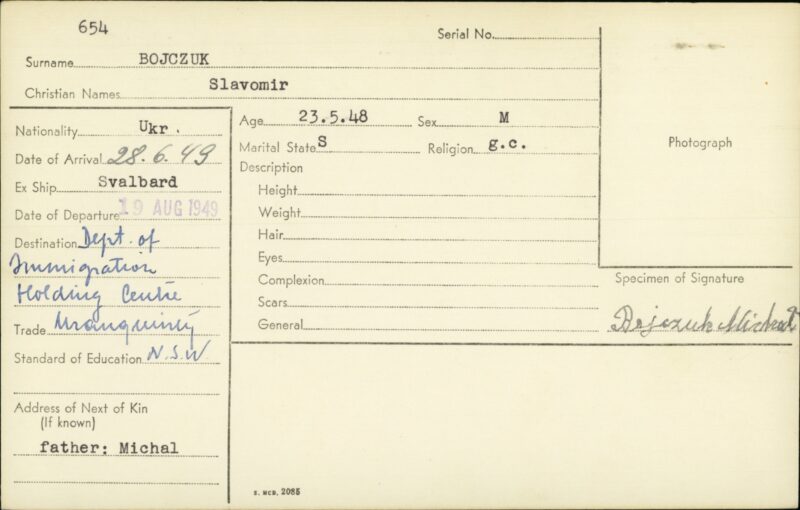 654
Serial No.
Surname BOJCZUK
Christian Names Slavomir
Nationality Ukr.
Date of Arrival 28.6.49
Ex Ship Svalbard
Date of Departure 19 AUG 1949
Destination Dept. of
Immigration
Holding Centre
Trade Uranquinty
Standard of Education N.S.W
Address of Next of Kin
(If known)
father: Michal
Age 23.5.48 Sex M
Marital State S Religion g.c.
Description
Height
Weight
Hair
Eyes
Complexion
Scars
General
Photograph
Specimen of Signature
Bojczuk Michał
S. MCD. 2085